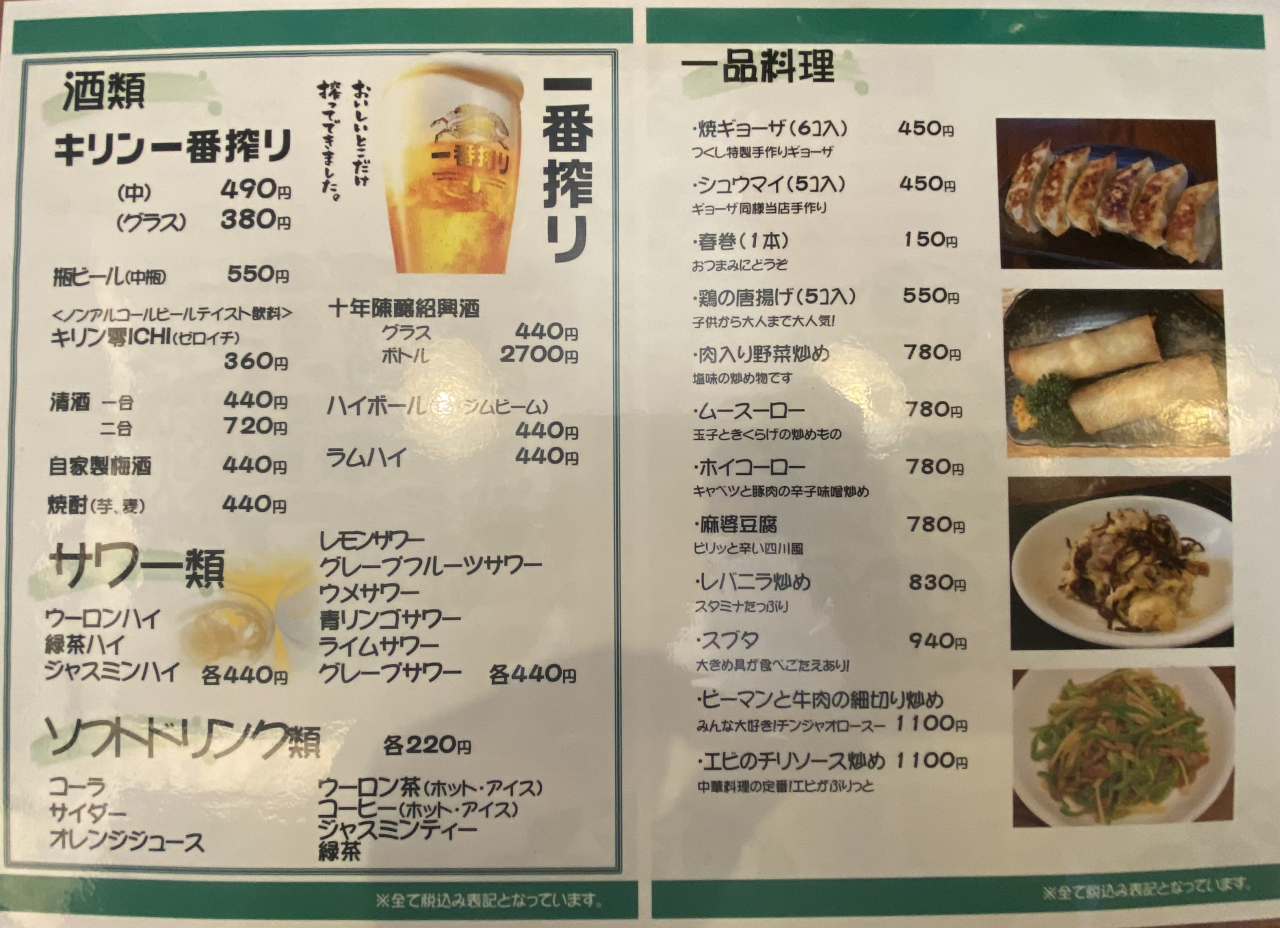 酒類
キリン一番搾り
(中) 490円
(グラス) 380円
瓶ビール(中瓶) 550円
<ノンアルコールビールテイスト飲料>
キリン零ICHI(ゼロイチ)
360円
清酒 一合 440円
二合 720円
自家製梅酒 440円
焼酎(芋、麦) 440円
おいしいとこだけ
搾ってできました。
一番搾り
一番搾り
十年陳醸紹興酒
グラス 440円
ボトル 2700円
ハイボール ジムビーム)
440円
ラムハイ 440円
サワー類
ウーロンハイ
緑茶ハイ
ジャスミンハイ 各440円
レモンサワー
グレープフルーツサワー
ウメサワー
青リンゴサワー
ライムサワー
グレープサワー 各440円
ソフトドリンク類 各220円
コーラ
サイダー
オレンジジュース
ウーロン茶(ホット・アイス)
コーヒー(ホット・アイス)
ジャスミンティー
緑茶
※全て税込み表記となっています。
一品料理
・焼ギョーザ(6コ入) 450円
つくし特製手作りギョーザ
・シュウマイ(5コ入) 450円
ギョーザ同様当店手作り
・春巻(1本) 150円
おつまみにどうぞ
・鶏の唐揚げ(5コ入) 550円
子供から大人まで大人気!
・肉入り野菜炒め 780円
塩味の炒め物です
・ムースーロー 780円
玉子ときくらげの炒めもの
・ホイコーロー 780円
キャベツと豚肉の辛子味噌炒め
・麻婆豆腐 780円
ピリッと辛い四川風
・レバニラ炒め 830円
スタミナたっぷり
・スブタ 940円
大きめ具が食べごたえあり!
・ピーマンと牛肉の細切り炒め
みんな大好き!チンジャオロースー 1100円
・エビのチリソース炒め 1100円
中華料理の定番!エビがぷりっと
※全て税込み表記となっています。